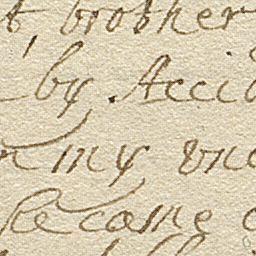 brother
by Acci
my vnc
became